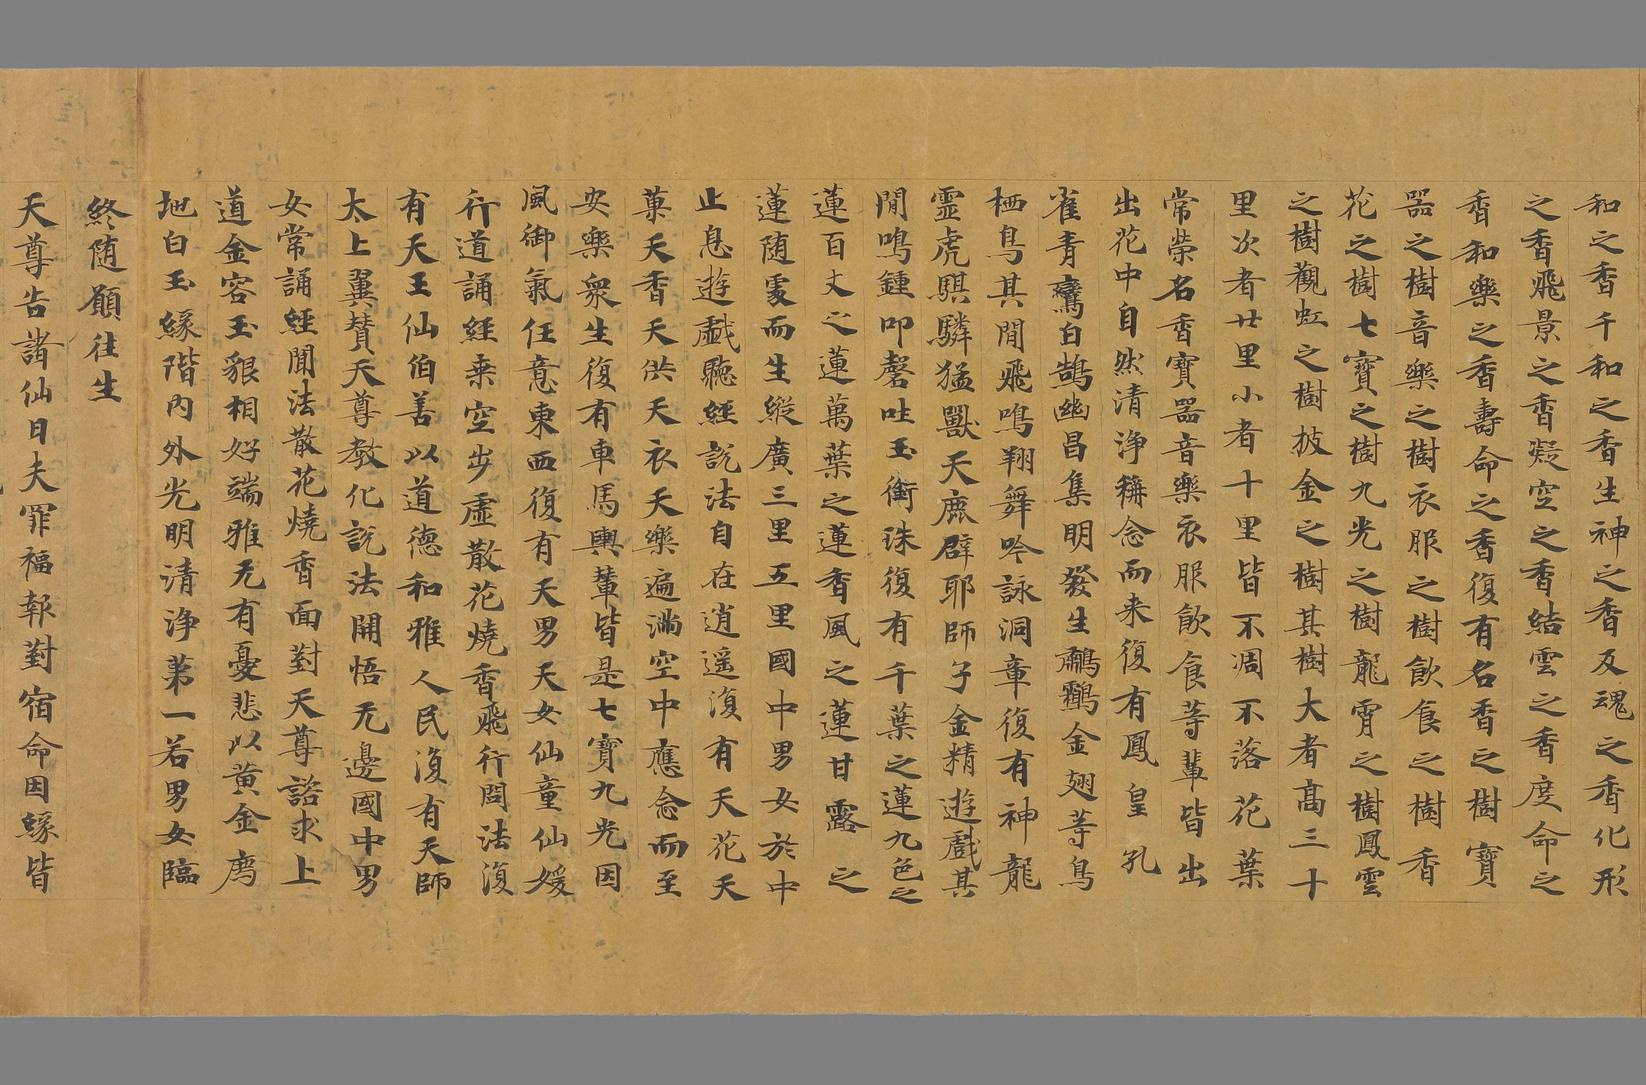 和之香千和之香生神之香反魂之香化形
之香飛景之香凝空之香結雲之香度命之
香和樂之香壽命之香復有名香之樹寶
器之樹音樂之樹衣服之樹飲食之樹香
花之樹七寶之樹九光之樹龍霄之樹鳳雲
之樹觀虹之樹披金之樹其樹大者髙三十
里次者廿里小者十里皆不凋不落花葉
常榮名香寶器音樂衣服飲食等輩皆出
出花中自然清浄稱念而来復有鳳皇孔
雀青鸞白鵠幽昌集明發生鸘金翅等鳥
栖鳥其間飛鳴翔舞吟詠洞章復有神龍
靈虎騏驎猛獸天鹿辟耶師子金精遊戲其
間鳴鍾叩磬吐玉銜珠復有千葉之蓮九色之
蓮百丈之蓮萬葉之蓮香風之蓮甘露之
蓮随處而生縱廣三里五里國中男女於中
止息遊戱聽經說法自在逍遥復有天花天
菓天香天供天衣天樂遍滿空中應念而至
安樂衆生復有車馬輿輦皆是七寶九光因
風御氣任意東西復有天男天女仙童仙媛
行道誦經乗空步虛散花燒香飛行問法復
有天王仙伯善以道德和雅人民復有天師
太上翼賛天尊教化說法開悟无邊國中男
女常誦經聞法散花燒香面對天尊諮求上
道金容玉貌相好端雅无有憂悲以黄金為
地白玉緣階内外光明清浄第一若男女臨
終随願往生
天尊告諸仙曰夫罪福報對宿命因緣皆